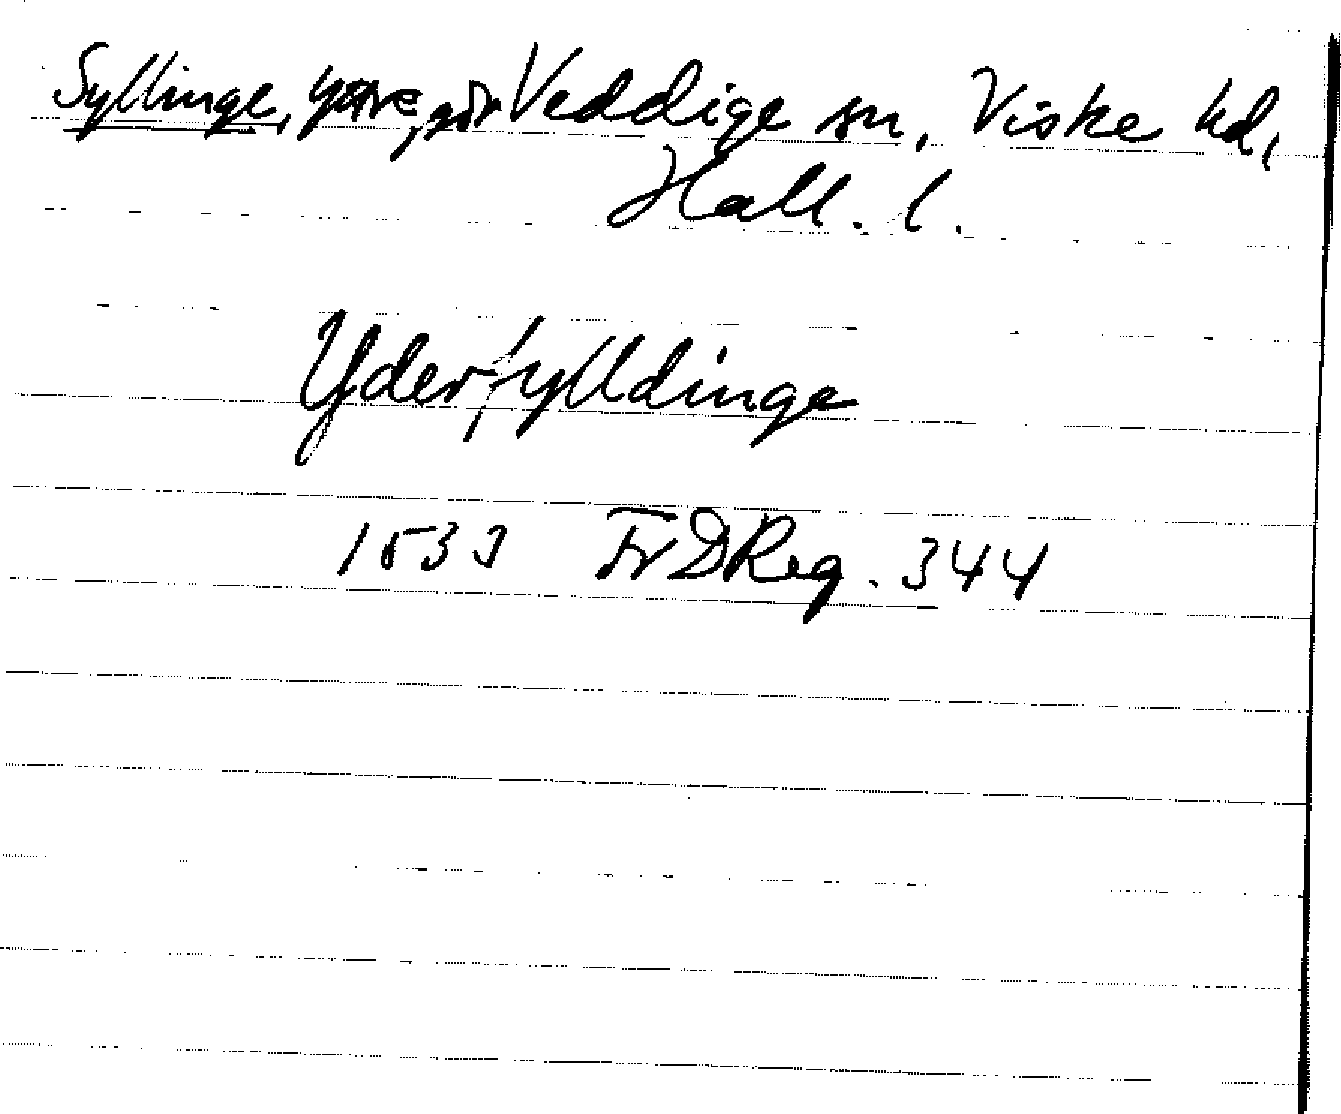 Syllinge, yttre, går Veddige sn, Viske hd,
Hall. l.
Yderſylldinge
1533 FrDReg. 344